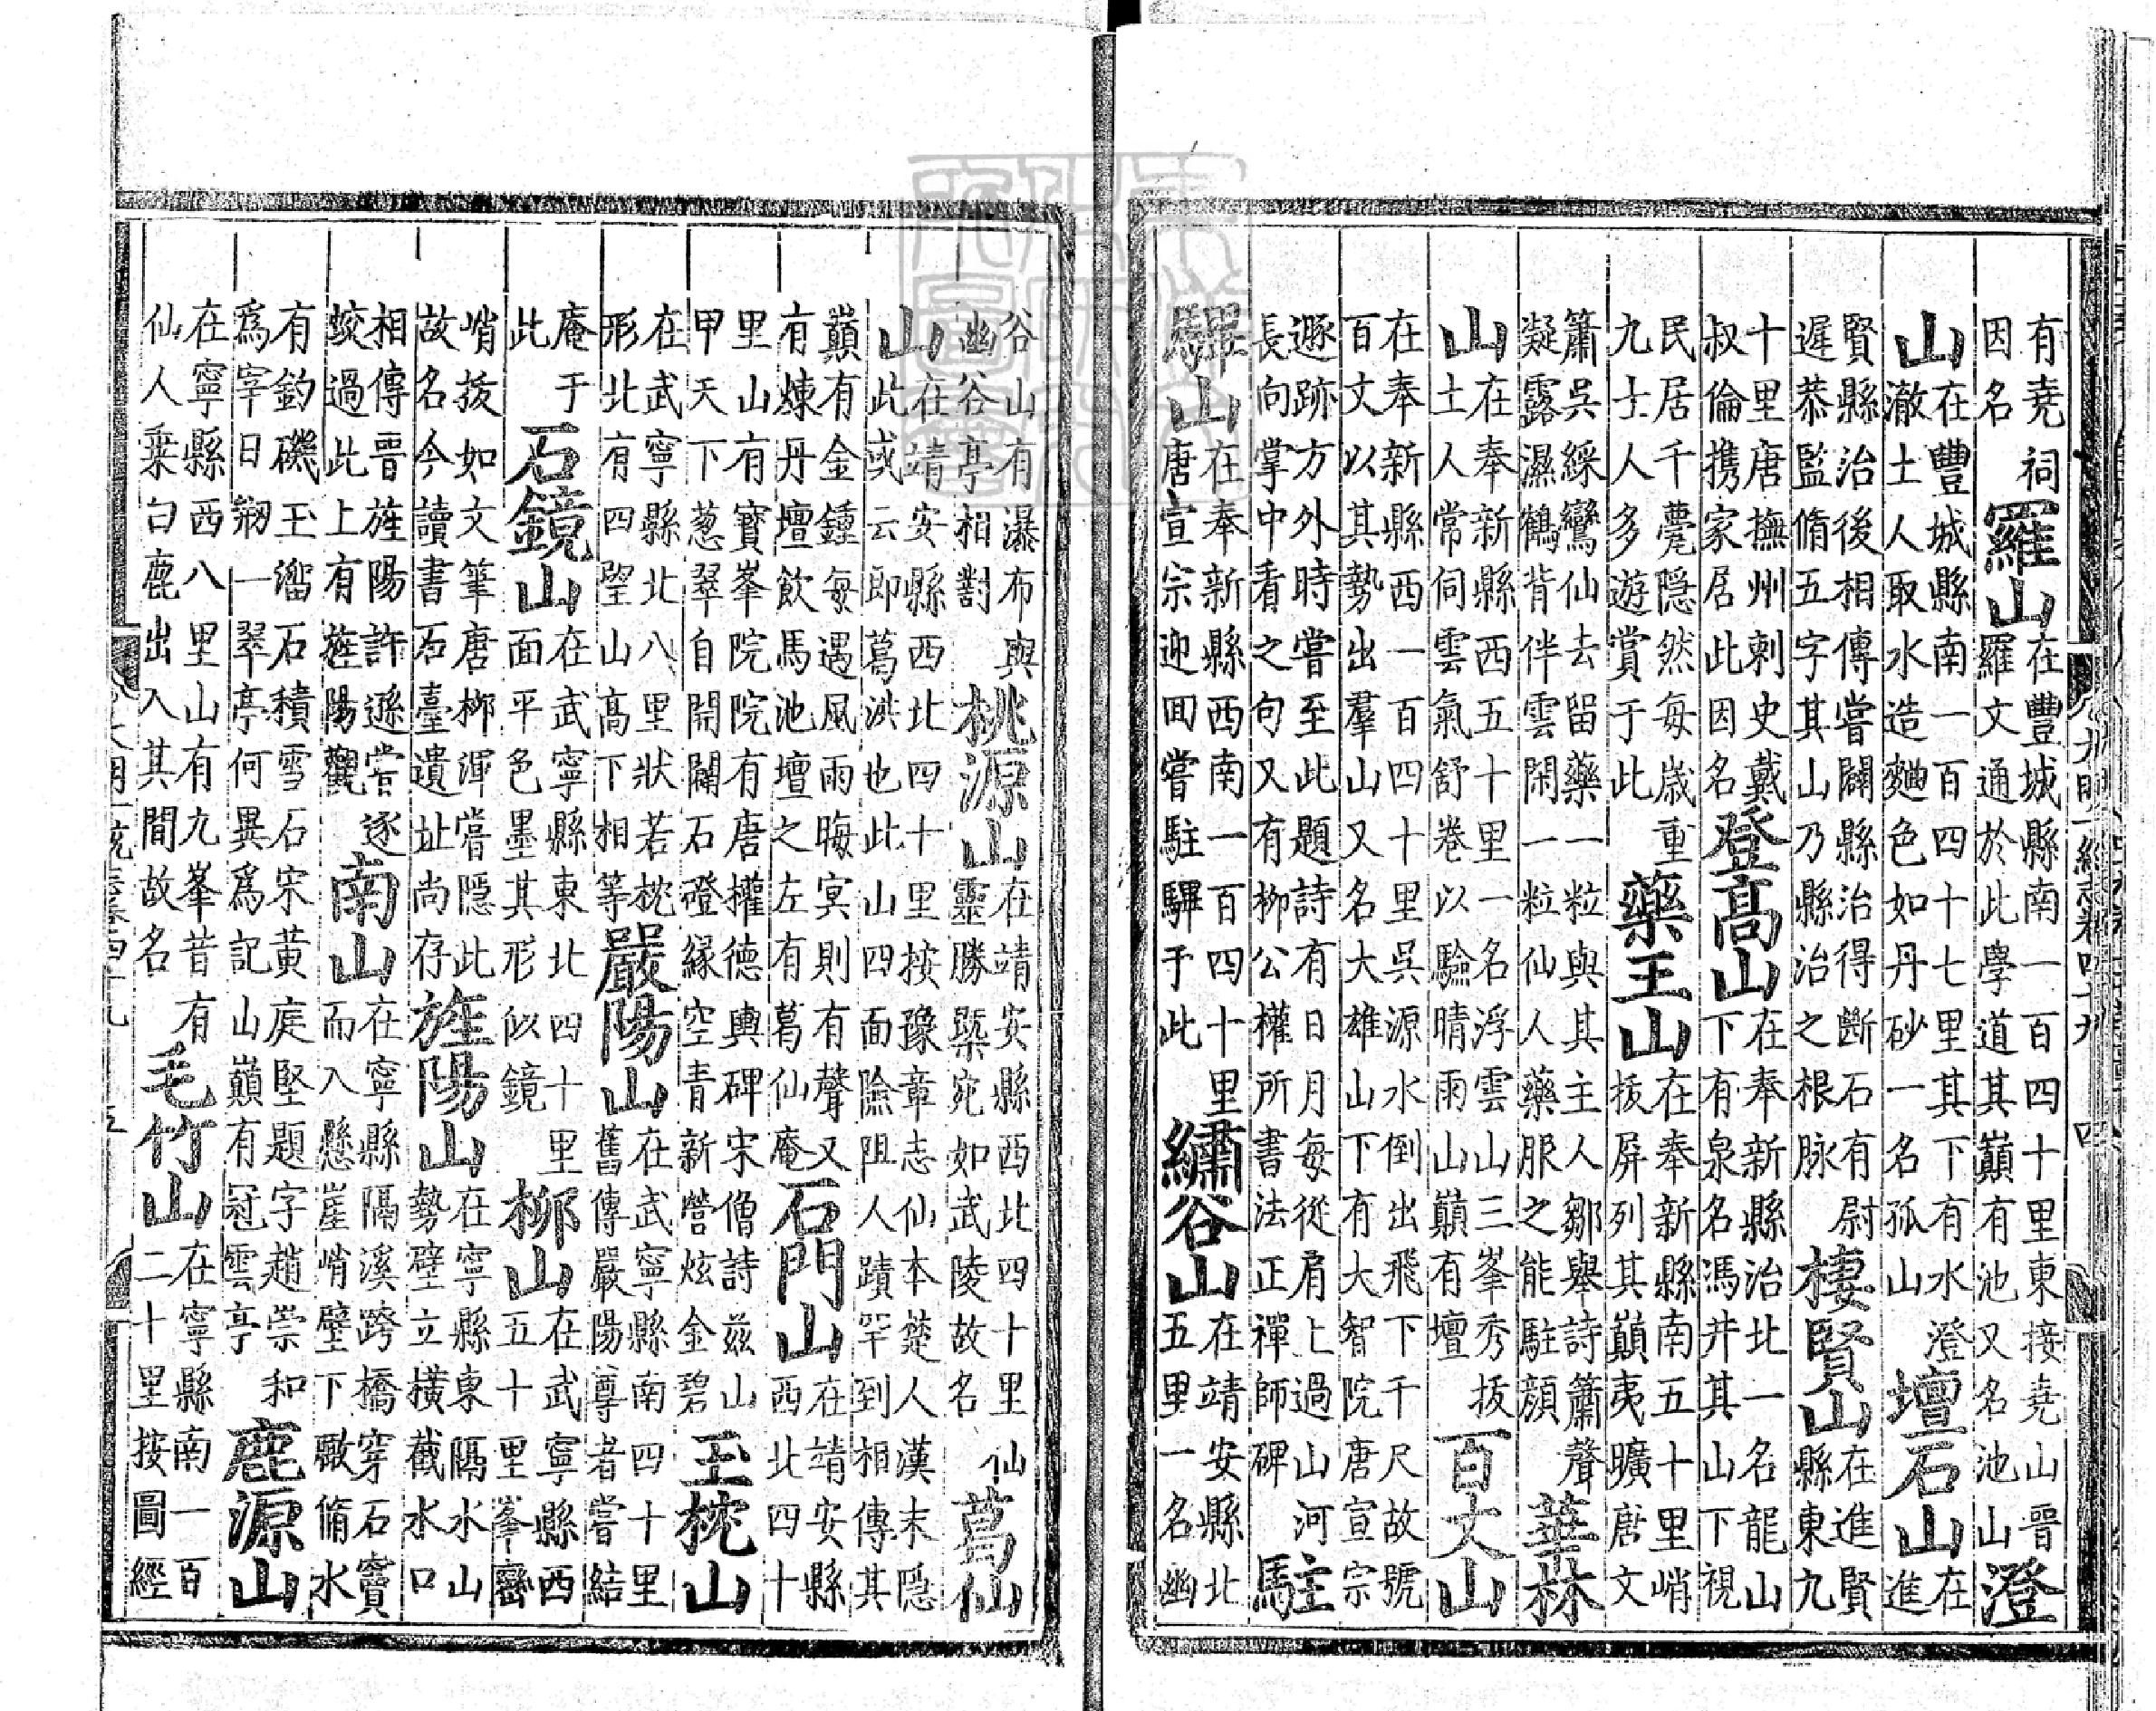 有堯祠因名羅山在豐城縣南一百四十里東接堯山晉羅文通於此學道其巔有池又名池山澄
山在豐城縣南一百四十七里其下有水澄澈土人取水造麯色如丹砂一名孤山壇石山在進
賢縣治後相傳嘗闢縣治得斷石有尉遲恭監脩五字其山乃縣治之根脉棲賢山在進賢縣東九
十里唐撫州刺史戴叔倫携家居此因名登高山在奉新縣治北一名龍山下有泉名馮井其山下視
民居千甍隱然每歲重九士人多遊賞于此藥王山在奉新縣南五十里峭拔屏列其巔夷曠唐文
簫吳綵鸞仙去留藥一粒與其主人鄒舉詩簫聲凝露濕鶴背伴雲閑一粒仙人藥服之能駐顔華林
山在奉新縣西五十里一名浮雲山三峯秀拔土人常伺雲氣舒卷以驗晴雨山巔有壇百丈山
在奉新縣西一百四十里吳源水倒出飛下千尺故號百丈以其勢出羣山又名大雄山下有大智院唐宣宗
遯跡方外時嘗至此題詩有日月每從肩上過山河長向掌中看之句又有柳公權所書法正禪師碑駐
驆山在奉新縣西南一百四十里唐宣宗迎回嘗駐驆于此繡谷山在靖安縣北五里一名幽
谷山有瀑布與幽谷亭相對桃源山在靖安縣西北四十里仙靈勝槩宛如武陵故名葛仙
山在靖安縣西北四十里按豫章志仙本楚人漢末隱此或云即葛洪也此山四面險阻人蹟罕到相傳其
巔有金鍾每遇風雨晦冥則有聲又有煉丹壇飲馬池壇之左有葛仙庵石門山在靖安縣西北四十
里山有寳峯院院有唐權德輿碑宋僧詩兹山甲天下葱翠自開闢石磴緣空青新營炫金碧玉枕山
在武寧縣北八里狀若枕形北有四望山高下相等嚴陽山在武寧縣南四十里舊傳嚴陽尊者嘗結
庵于此石鏡山在武寧縣東北四十里面平色墨其形似鏡柳山在武寧縣西五十里峯巒
峭拔如文筆唐柳渾嘗隱此故名今讀書石臺遺址尚存旌陽山在寧縣東隔水山勢壁立橫截水口
相傳晉旌陽許遜嘗逐蛟過此上有旌陽觀南山在寧縣隔溪跨橋穿石竇而入懸崖峭壁下瞰脩水
有釣磯玉溜石積雪石宋黄庭堅題字趙崇和爲宰日剏一翠亭何異爲記山巔有冠雲亭鹿源山
在寧縣西八里山有九峯昔有仙人乘白鹿出入其間故名毛竹山在寧縣南一百二十里按圖經